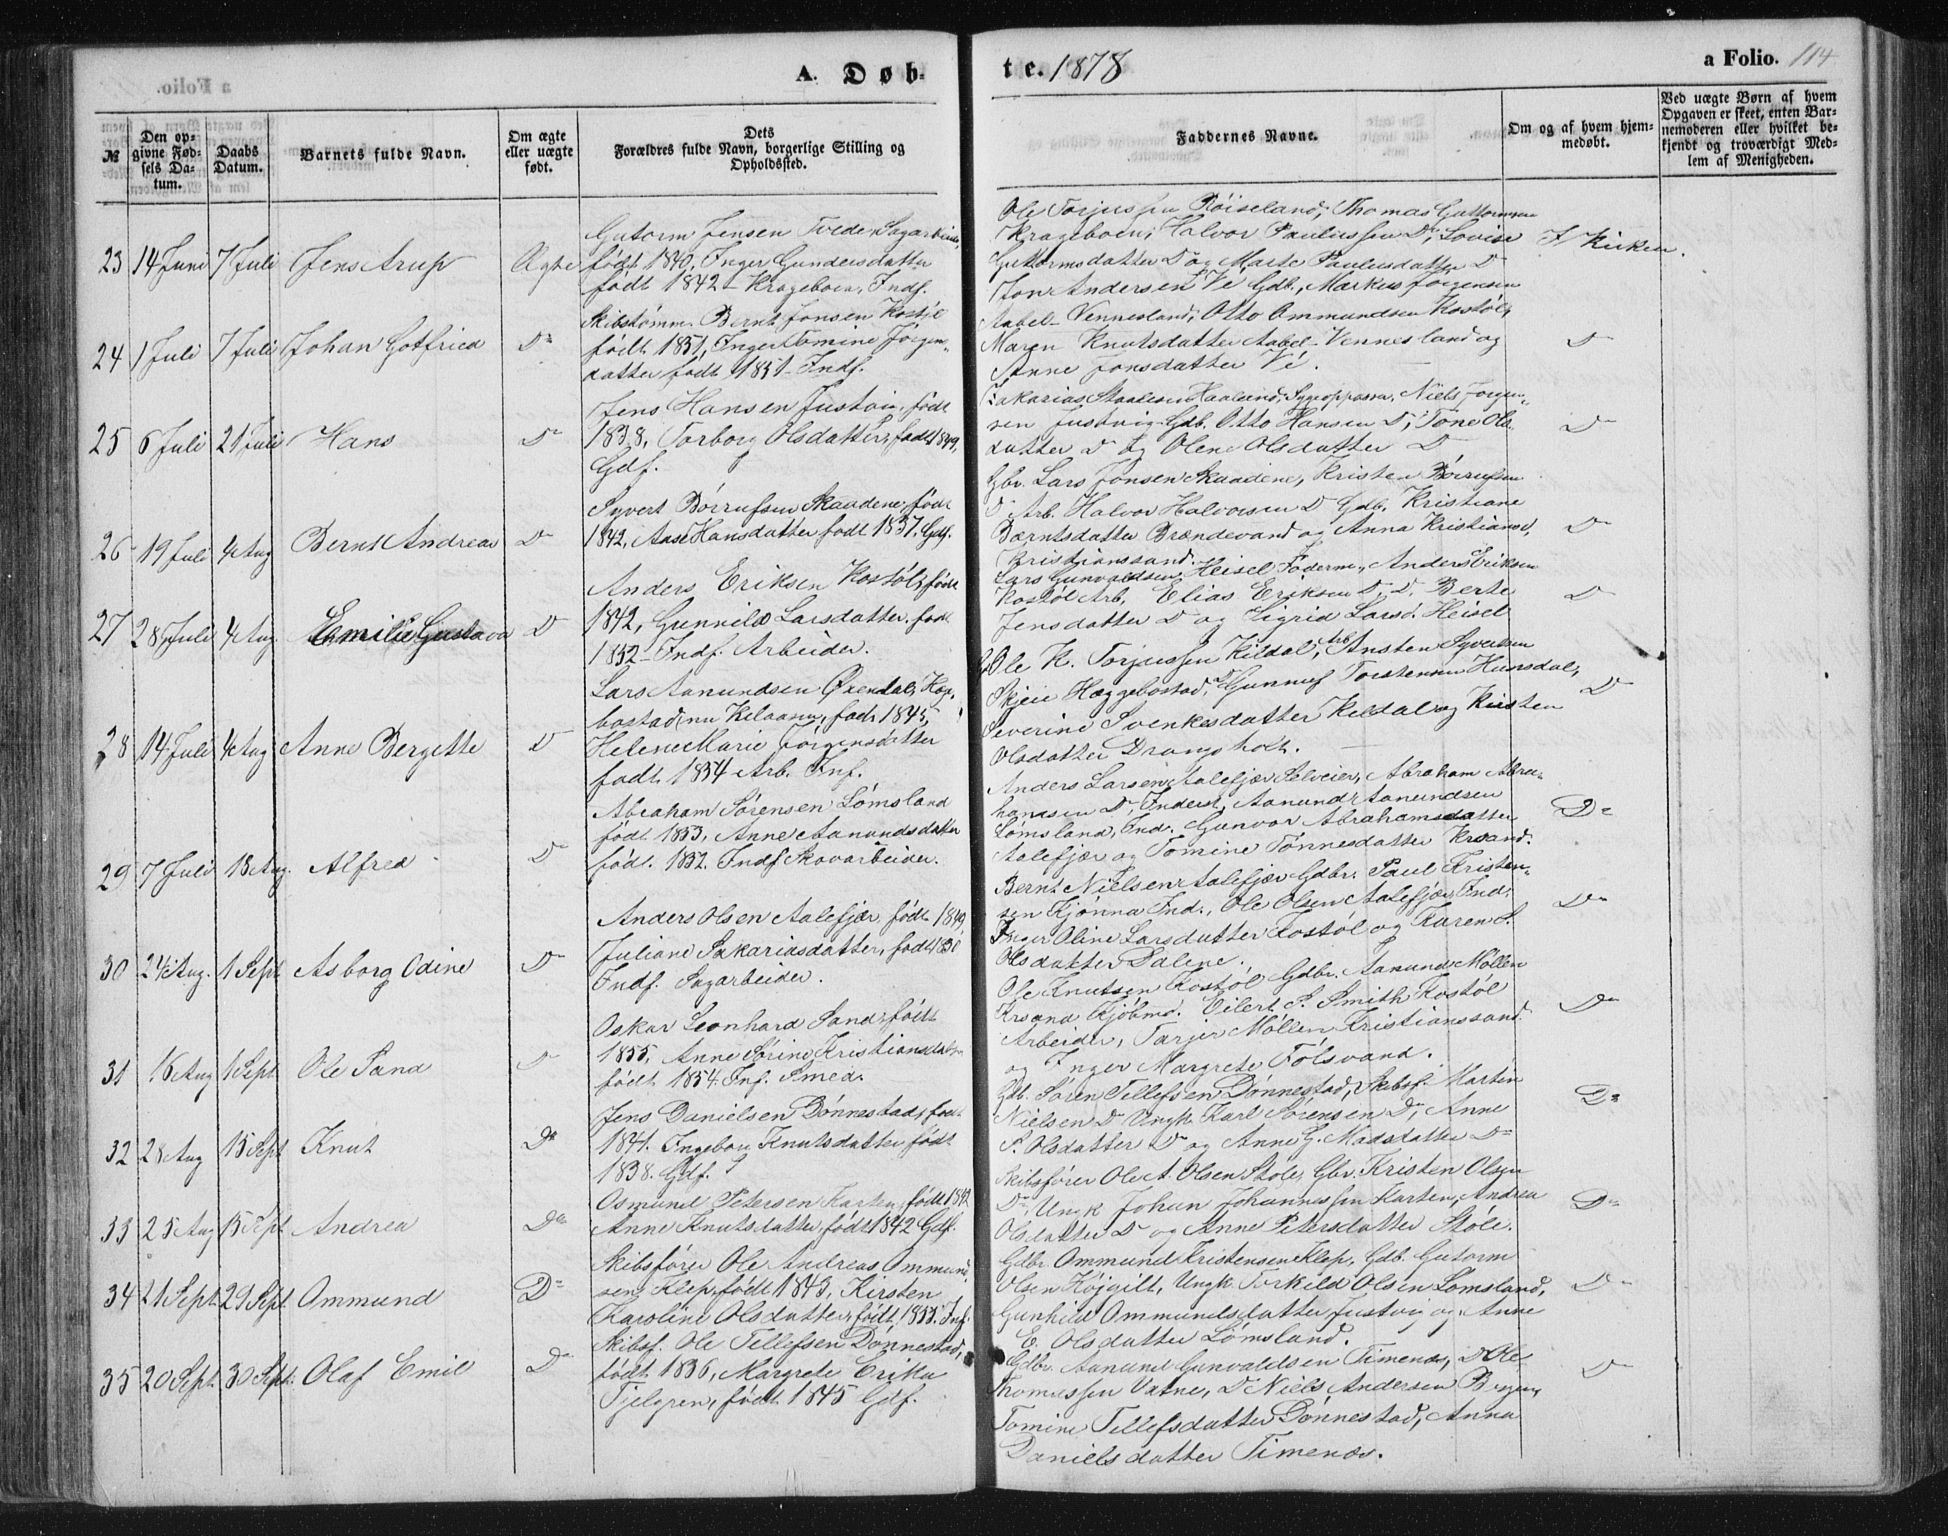 a Folio.
A. Døb-
te. 1878
a Folio. 114
№
Den op-
givne Fød-
sels Da-
tum.
Daabs
Datum.
Barnets fulde Navn.
Om ægte
eller uægte
født.
Dets
Forældres fulde Navn, borgerlige Stilling og
Opholdssted.
Faddernes Navne.
Om og af hvem hjem-
medøbt.
Ved uægte Børn af hvem
Opgaven er skeet, enten Bar-
nemoderen eller hvilket be-
kjendt og troværdigt Med-
lem af Menigheden.
23 14 Juni 7 Juli Jens Arup Ægte
Gutorm Jensen Tvede, Sagarbeider,
født 1840, Inger Gundersdatter
født 1842 - Krageboen, Indf.
Ole Torjussen Röiseland, Thomas Guttormsen
Krageboen, Halvor Paulussen Do, Lovise
Guttormsdatter Do og Marte Paulusdatter Do
I Kirken.
24 1 Juli 7 Juli Johan Gotfried Do
Skibstømm. Bernt Jonsen Kostøl
født 1851, Inger Tomine Jörgens-
datter født 1851 - Indf.
Jon Andersen Vé Gdb., Markus Jorgensen
Aabel - Vennesland, Otto Ommundsen Kostöl,
Maren Knutsdatter Aabel - Vennesland og
Anne Jonsdatter Vé.
Do
25 6 Juli 21 Juli Hans Do
Jens Hansen Justvig, født
1838, Torborg Olsdatter, født 1849,
Gdf.
Zakarias Staalesen Haaland, Sygeoppasser, Niels Jorgen-
sen Justvig Gdb. Otto Hansen Do, Tone Ols-
datter Do og Olene Olsdatter Do
Do
26 19 Juli 4 Aug Bernt Andreas Do
Syvert Börrufsen Skaadene, født
1842, Aase Hansdatter født 1837. Gdf.
Gbr. Lars Jonsen Skaadene, Kristen Börrufsen
Do Arb. Halvor Halvorsen Do Gdb. Kristiane
Bærntsdatter Brændevand og Anna Kristiansd,
Kristianssand.
Do
27 28 Juli 4 Aug Emilie Gustava Do
Anders Eriksen Kostöl, født
1842, Gunnild Larsdatter født
1852 - Indf. Arbeider.
Lars Gunvaldsen Heisel Föderm., Anders Eriksen
Kostöl Arb., Elias Eriksen Do, Do. Berte
Jensdatter Do og Sigrid Larsd. Heisel
Do
28 14 Juli 4 Aug Anne Bergette Do
Lars Aanundsen Øxendal, Hæg-
bostad, nu Kilaanu, født 1845,
Helene Marie Jörgensdatter
født 1834 Arb. Inf.
Ole K. Torjussen Kildal, Arb. Ansten Syvertsen
Skjeie Hæggebostad, Gunnuf Torstensen Hunsdal,
Severine Svenkesdatter Kildal og Kirsten
Olsdatter Drangsholt.
Do
29 7 Juli 18 Aug. Alfred Do
Abraham Sörensen Lömsland
født 1853, Anne Aanundsdatter
født. 1852. Indf Skovarbeider.
Anders Larsen Aalefjær Selveier, Abraham Abra-
hamsen Do, Inderst, Aanund Aanundsen
Lömsland, Ind. Gunvor Abrahamsdatter
Aalefjær og Tomine Tönnesdatter Krsand.
Do
30 24 Aug. 1 Sept Asborg Odine Do
Anders Olsen Aalefjær, født 1849,
Juliane Sakariasdatter, født 1850
Indf. Sagarbeider.
Bernt Nielsen Aalefjær Gdbr. Paul Kristen-
sen Kjönna Ind., Ole Olsen Aalefjær Ind.
Inger Oline Larsdatter Kostöl og Karen S.
Olsdatter Dalene.
Do
31 16 Aug 1 Sept Ole Sand Do
Oskar Leonhard Sand, født
1855, Anne Sörine Kristiansdatter
født 1854. Inf. Smed.
Ole Knutsen Kostöl Gdbr. Aanund Möllen
Krsand Kjöbmd. Eilert S. Smith Kostöl
Arbeider, Tarjer Möllen Kristianssand
og Inger Margrete Fölsvand.
Do
32 28 Aug 15 Sept Knut Do
Jens Danielsen Dönnestad, født
1841. Ingeborg Knutsdatter født
1838. Gdf.
Gdb. Sören Tellefsen Dönnestad, Skibsf. Martin
Nielsen Do Ungk. Karl Sörensen Do, Anne
S. Olsdatter Do og Anne G. Madsdatter Do
Do
33 25 Aug 15 Sept Andrea Do
Osmund Petersen Karten, født 1842
Anne Knutsdatter, født 1842 Gdf.
Skibsförer Ole A. Olsen Stöle, Gbr. Kristen Olsen
Do, Ungk Johan Johannessen Karten, Andrea
Olsdatter Do og Anne Petersdatter Stöle.
Do
34 21 Sept 29 Sept. Ommund Do
Skibsförer Ole Andreas Ommund-
sen Klep, født 1843, Kirsten
Karoline Olsdatter, født 1855. Inf.
Gdbr Ommund Kristensen Klep, Gdb. Gutorm
Olsen Höjgilt, Ungk. Torkild Olsen Lömsland,
Gunhild Ommundsdatter Justvig og Anne
E. Olsdatter Lömsland.
Do
35 20 Sept 30 Sept. Olaf Emil Do
Skibsf. Ole Tellefsen Dönnestad,
født 1836, Margrete Erika
Tjelgren, født 1845 Gdf.
Gdbr. Aanund Gunvaldsen Timenes, Do Ole
Thomassen Vatne, Do Niels Andersen Bergen,
Tomine Tellefsdatter Dönnestad, Anna
Danielsdatter Timenes.
Do